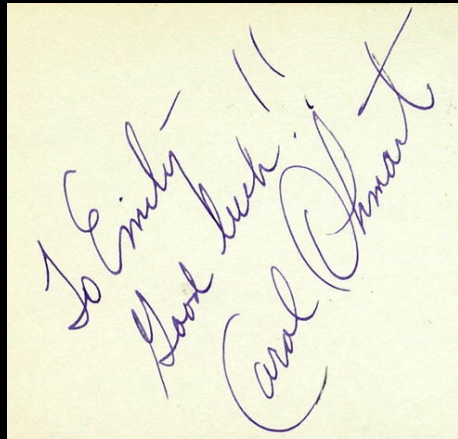 To Emily-
Good luck!!
Carol Ohmart